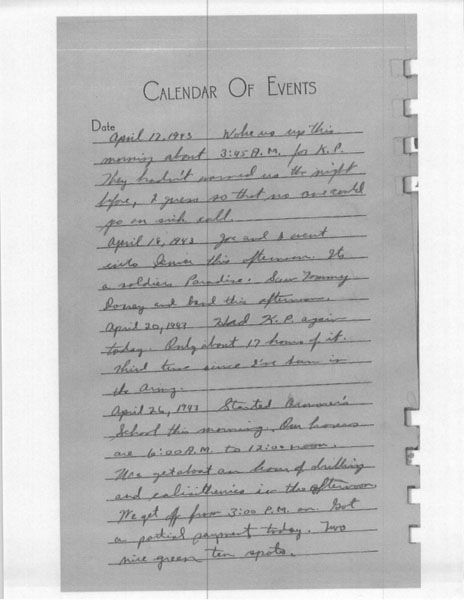 CALENDAR OF EVENTS
Date
April 17, 1943 Woke us up this
morning about 3:45 A.M. for K.P.
They hadn't warned us the night
before, I guess so that no one could
go on sick call.
April 18, 1943 Joe and I went
into Denver this afternoon. Its
a soldiers Paradise. Saw Tommy
Dorsey and band this afternoon.
April 20, 1943 Had K.P. again
today. Only about 17 hours of it.
Third time since I've been in
the Army.
April 26, 1943 Started Armorer's
School this morning. Our hours
are 6:00 A.M. to 12:00 noon.
We get about an hour of drilling
and calisthenics in the afternoon
We get off from 3:00 P.M. on. Got
a partial payment today. Two
nice green ten spots.